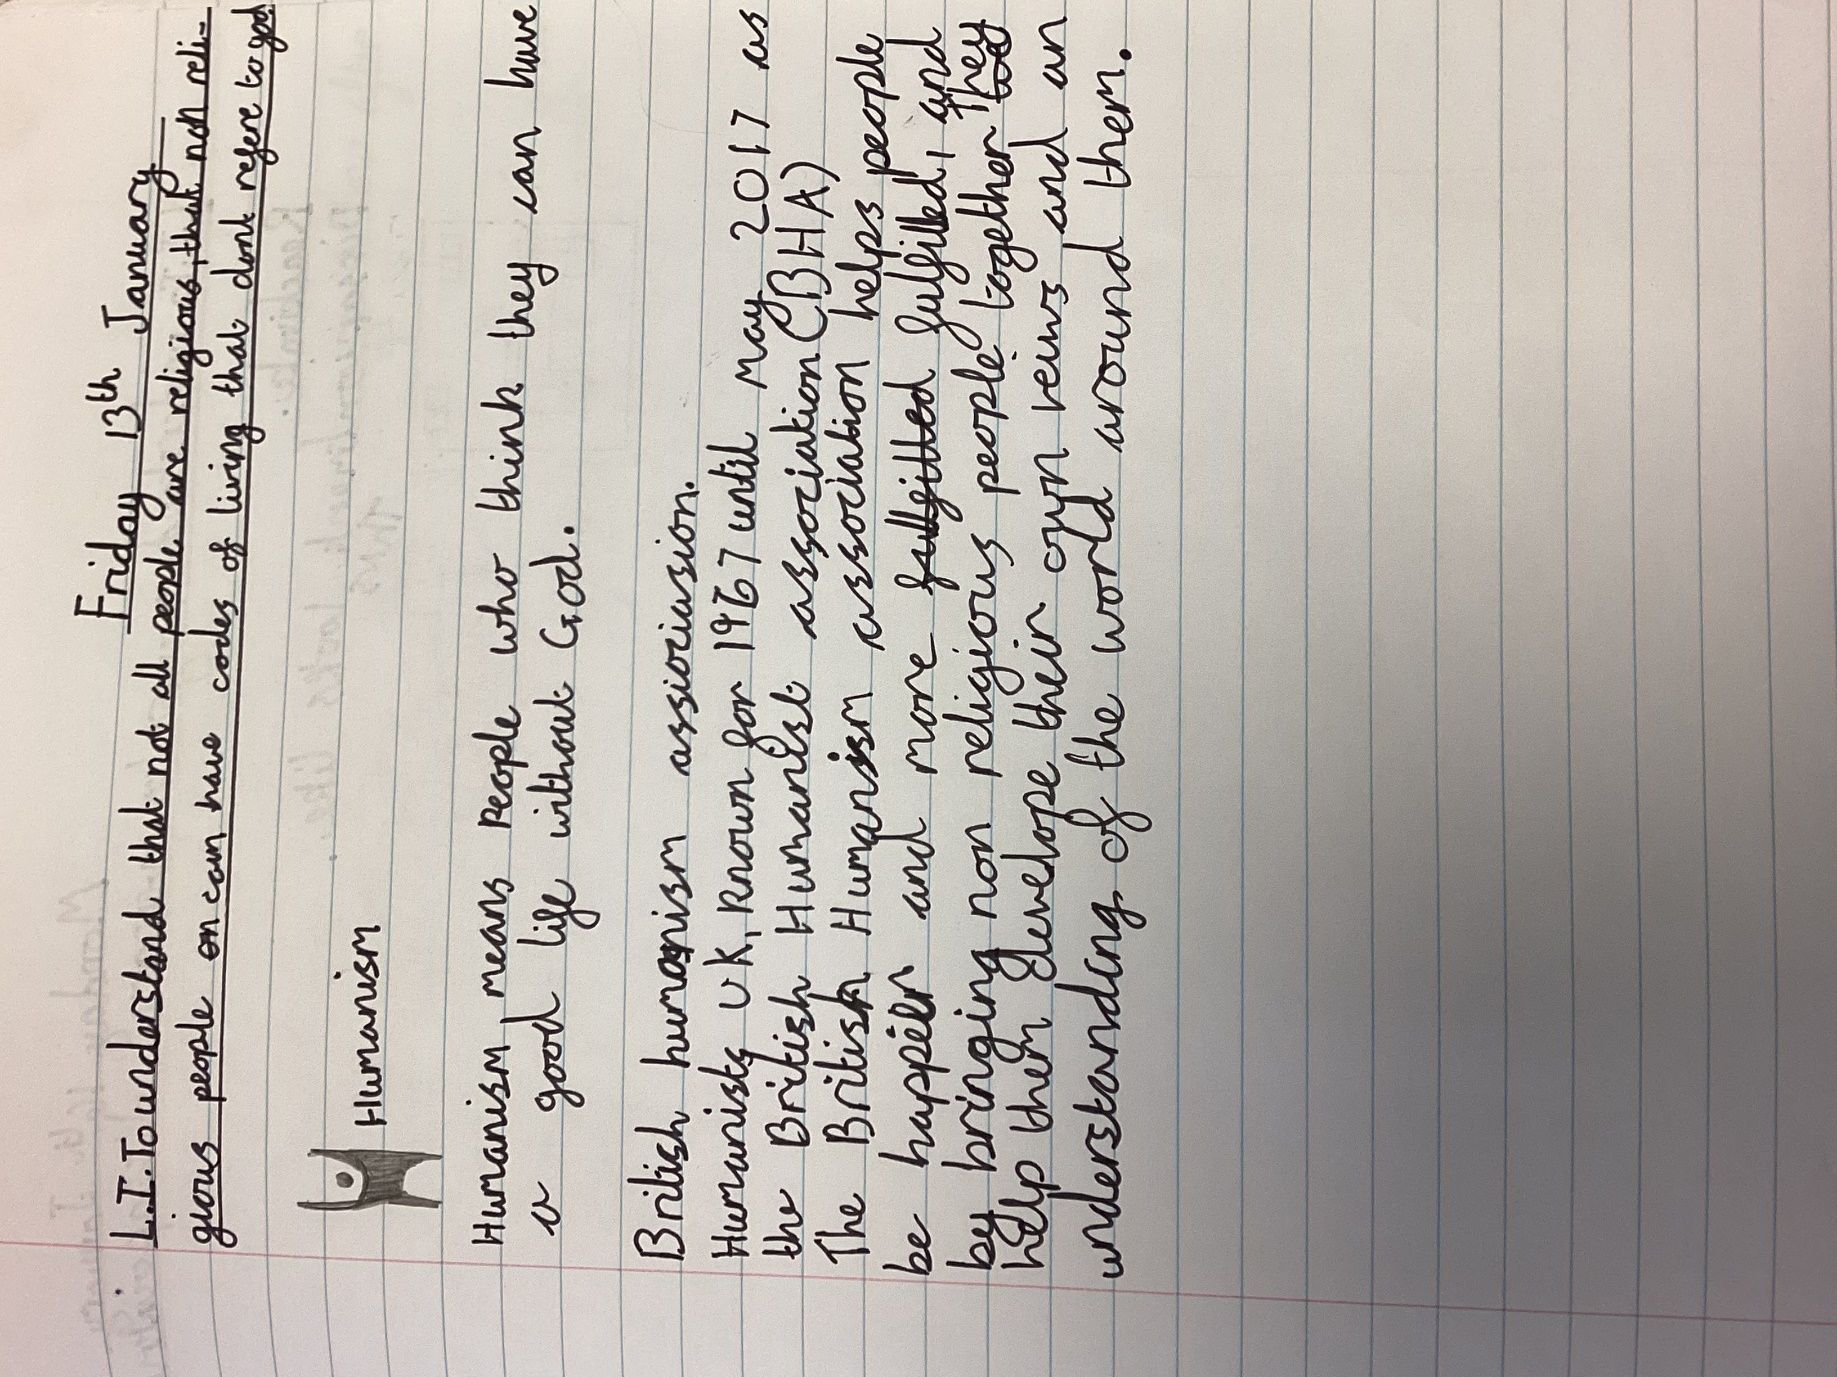 Friday 13th January
L.I. To understand that not all people are religious, that non reli-
gious people on can have codes of living that dont refere to god
Humanism
Humanism means People who think they can have
a good life without God.
British humanism associasion.
Humanists UK, known for 1967 until may 2017 as
the British Humanist association (BHA)
The British Humanism association helps people
be happier and more fulfilled fulfilled, and
by bringing non religious people together They
help them develope their own veiws and an
understanding of the world around them.